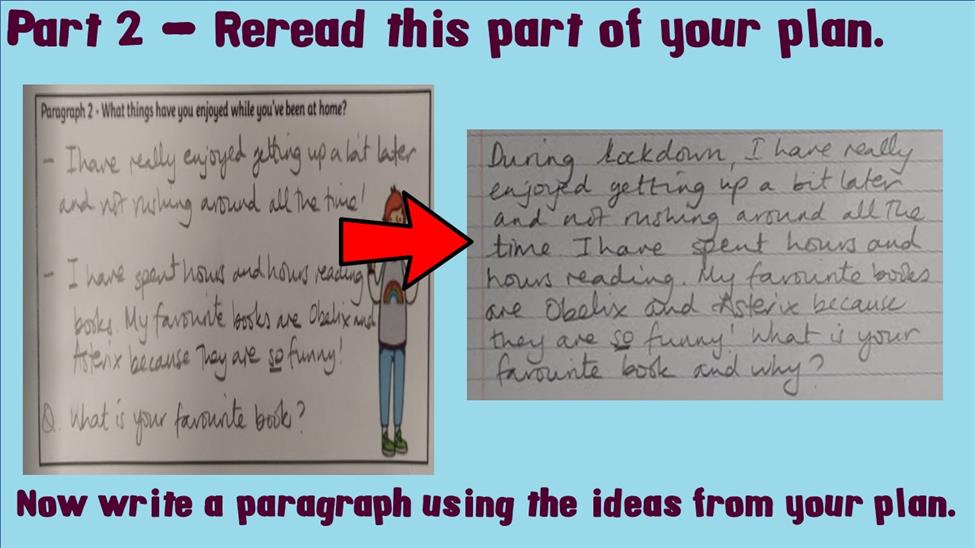 Part 2 - Reread this part of your plan.
Paragraph 2 - What things have you enjoyed while you've been at home?
- I have really enjoyed getting up a bit later
and not rushing around all the time!
- I have spent hours and hours reading
books. My favourite books are Obelix and
Asterix because they are so funny!
Q. What is your favourite book?
During lockdown, I have really
enjoyed getting up a bit later
and not rushing around all the
time. I have spent hours and
hours reading. My favourite books
are Obelix and Asterix because
they are so funny! What is your
favourite book and why?
Now write a paragraph using the ideas from your plan.